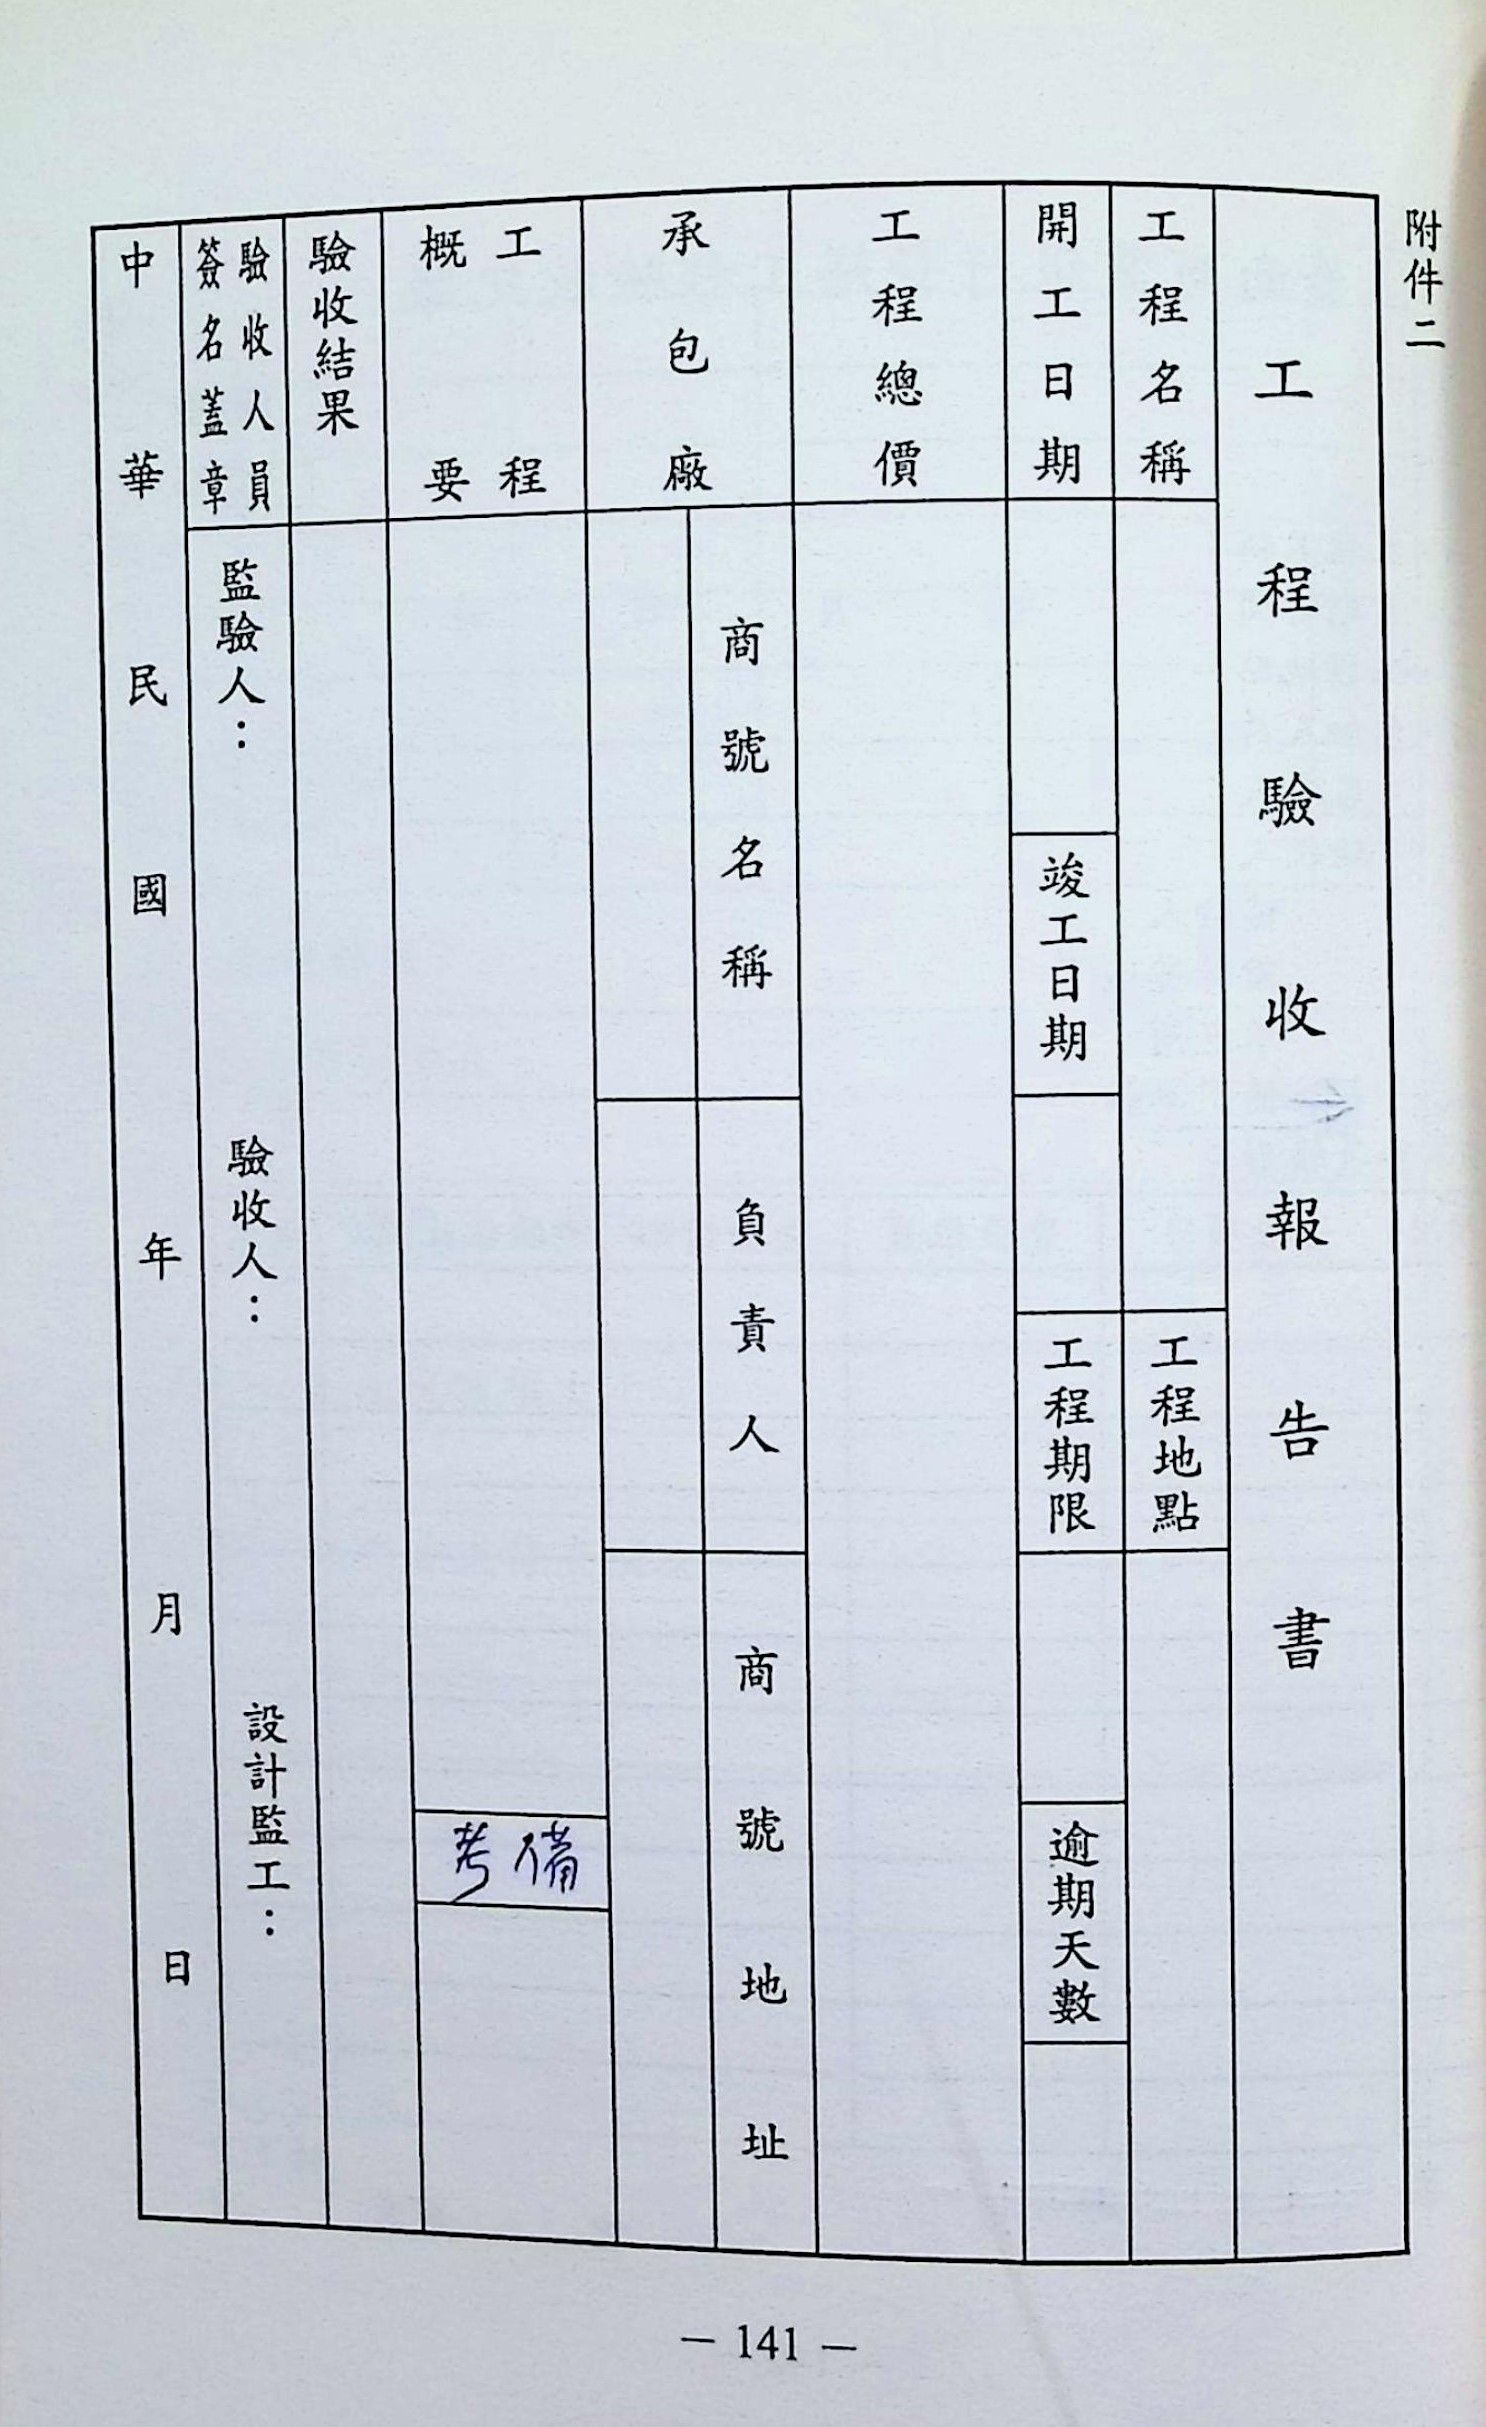 附件二
工程驗收報告書
工程名稱
工程地點
開工日期
竣工日期
工程期限
逾期天數
工程總價
承包廠
商號名稱
負責人
商號地址
工程
概要
備考
驗收結果
驗收人員
簽名蓋章
監驗人：
驗收人：
設計監工：
中華民國 年 月 日
— 141 —